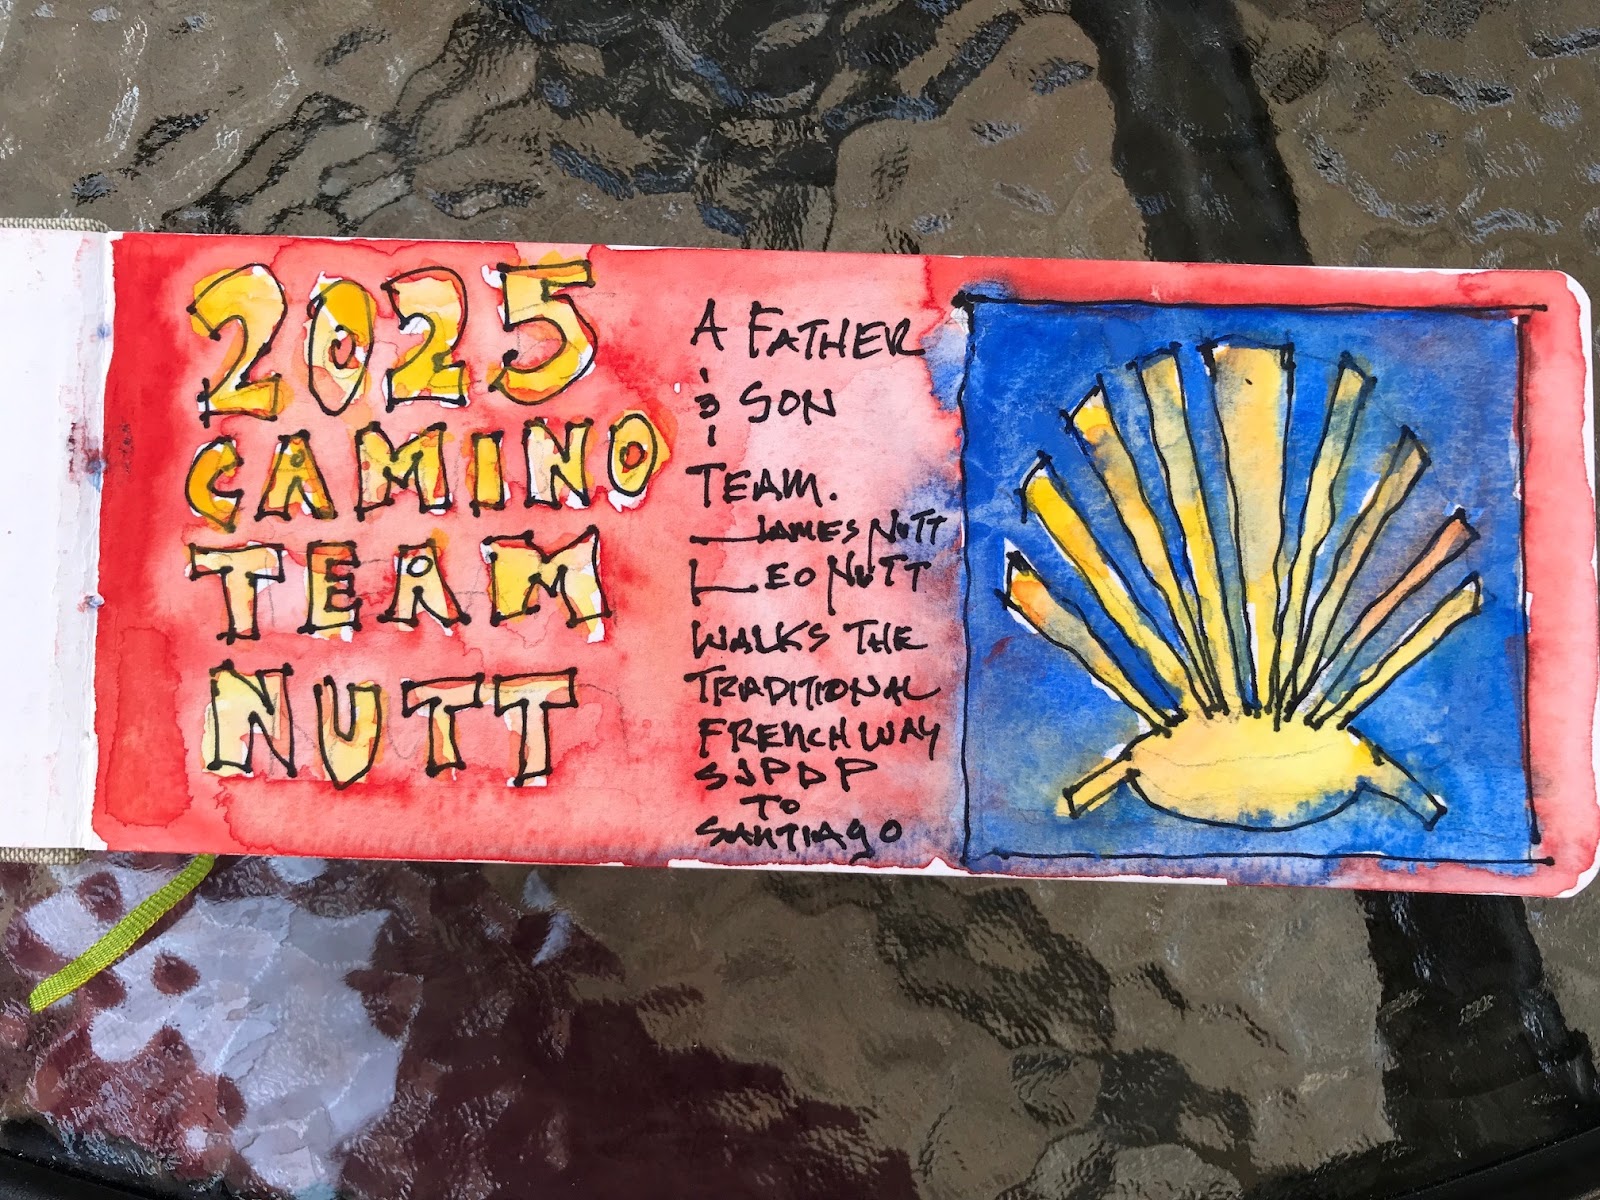 2025
CAMINO
TEAM
NUTT
A FATHER
& SON
TEAM.
JAMES NUTT
LEO NUTT
WALKS THE
TRADITIONAL
FRENCH WAY
SJPDP
TO
SANTIAGO